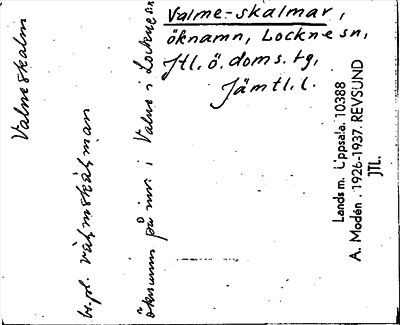 Valme-skalmar,
öknamn, Lockne sn,
Jtl. ö. doms. tg,
Jämtl. l.
Valmeskalm
be. pl.
öknamn på inv. i Valne i Lockne sn
Landsm. Uppsala. 10388
A. Modén. 1926-1937. REVSUND
JTL.